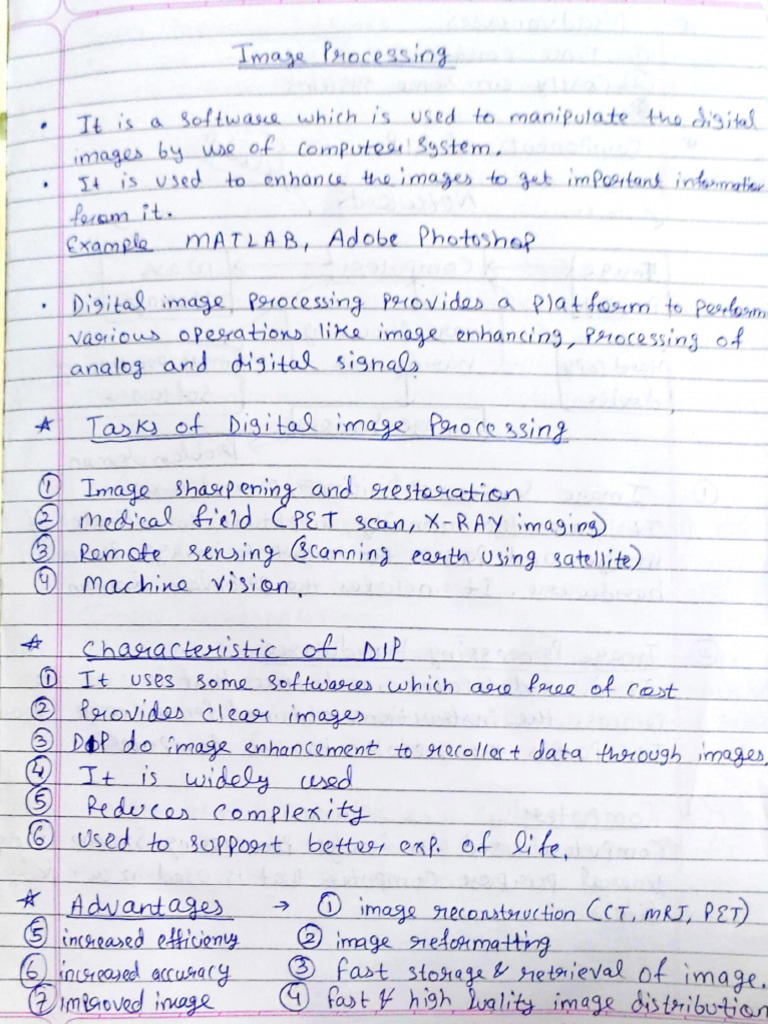 Image Processing
• It is a software which is used to manipulate the digital
images by use of computer system.
• It is used to enhance the images to get important information
from it.
Example MATLAB, Adobe Photoshop
• Digital image processing provides a platform to perform
various operations like image enhancing, processing of
analog and digital signals
* Tasks of Digital image Processing
① Image sharpening and restoration
② Medical field (PET scan, X-RAY imaging)
③ Remote sensing (scanning earth using satellite)
④ Machine vision.
* Characteristic of DIP
① It uses some softwares which are free of cost
② Provides clear images
③ DIP do image enhancement to recollect data through images.
④ It is widely used
⑤ Reduces complexity
⑥ Used to support better exp. of life.
* Advantages → ① image reconstruction (CT, MRI, PET)
⑤ increased efficieny ② image reformatting
⑥ increased accuracy ③ Fast storage & retrieval of image.
⑦ improved image ④ fast & high quality image distribution